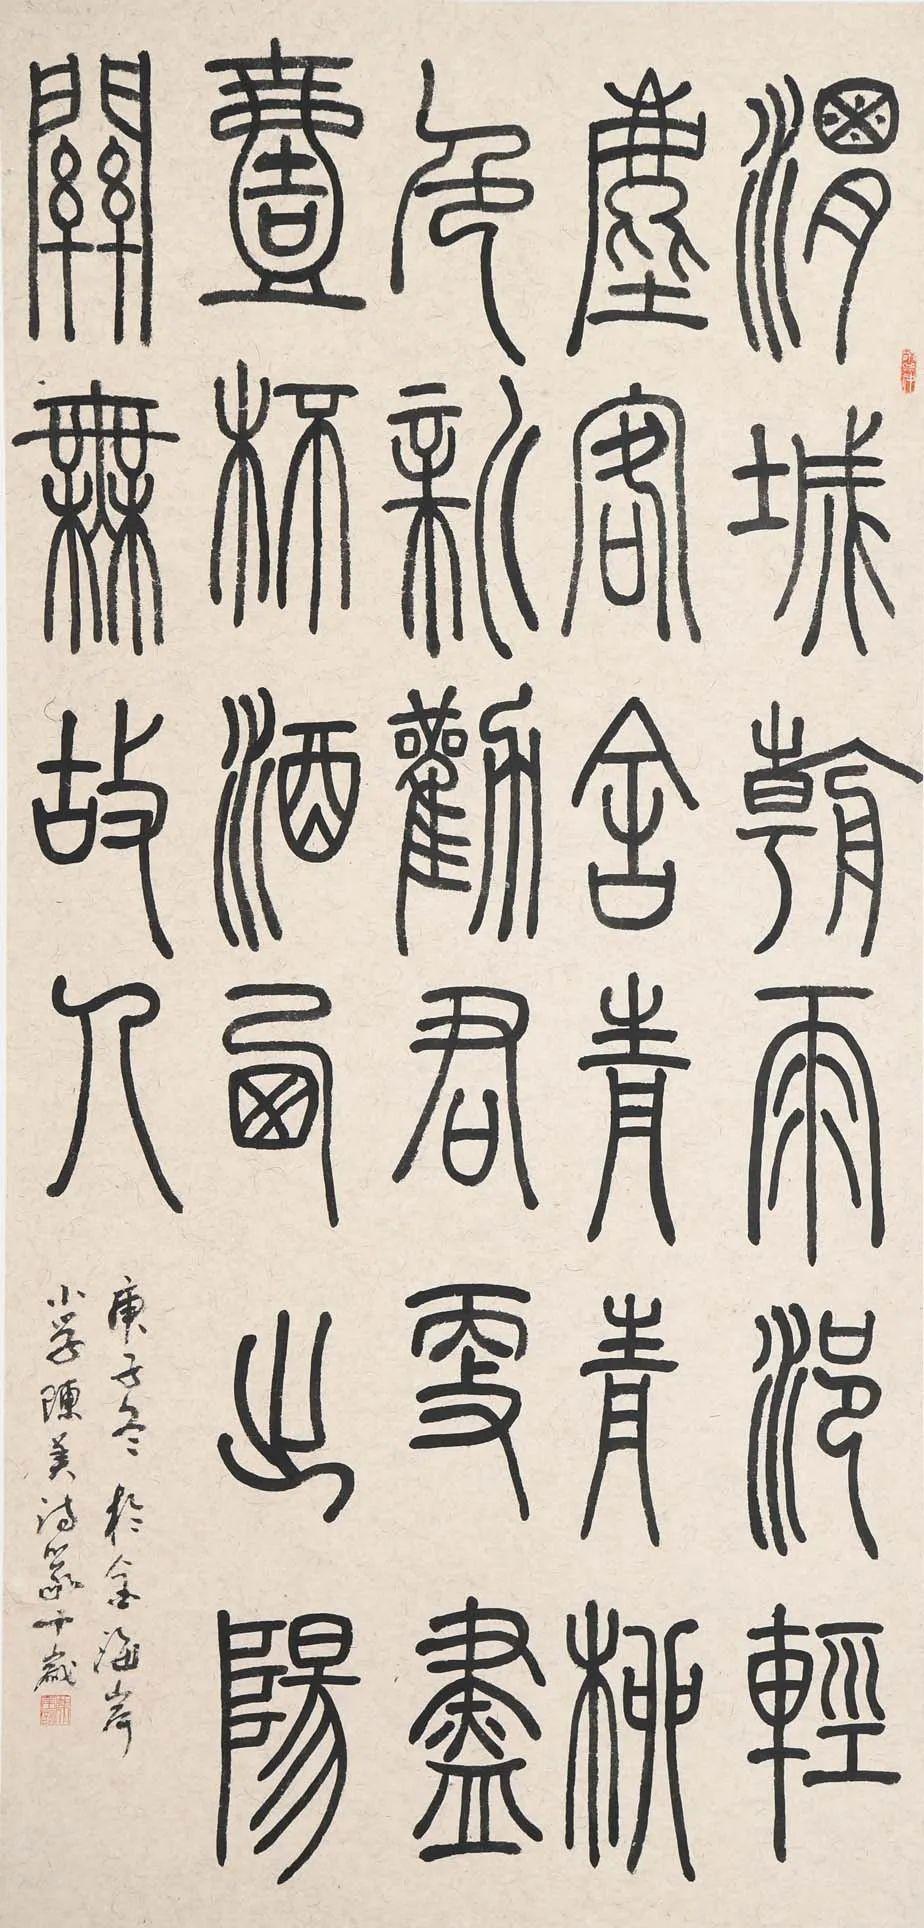 渭城朝雨浥輕
塵客舍青青柳
色新勸君更盡
壹杯酒西出陽
關無故人
庚子冬於金海岸
小學陳美詩篆十歲